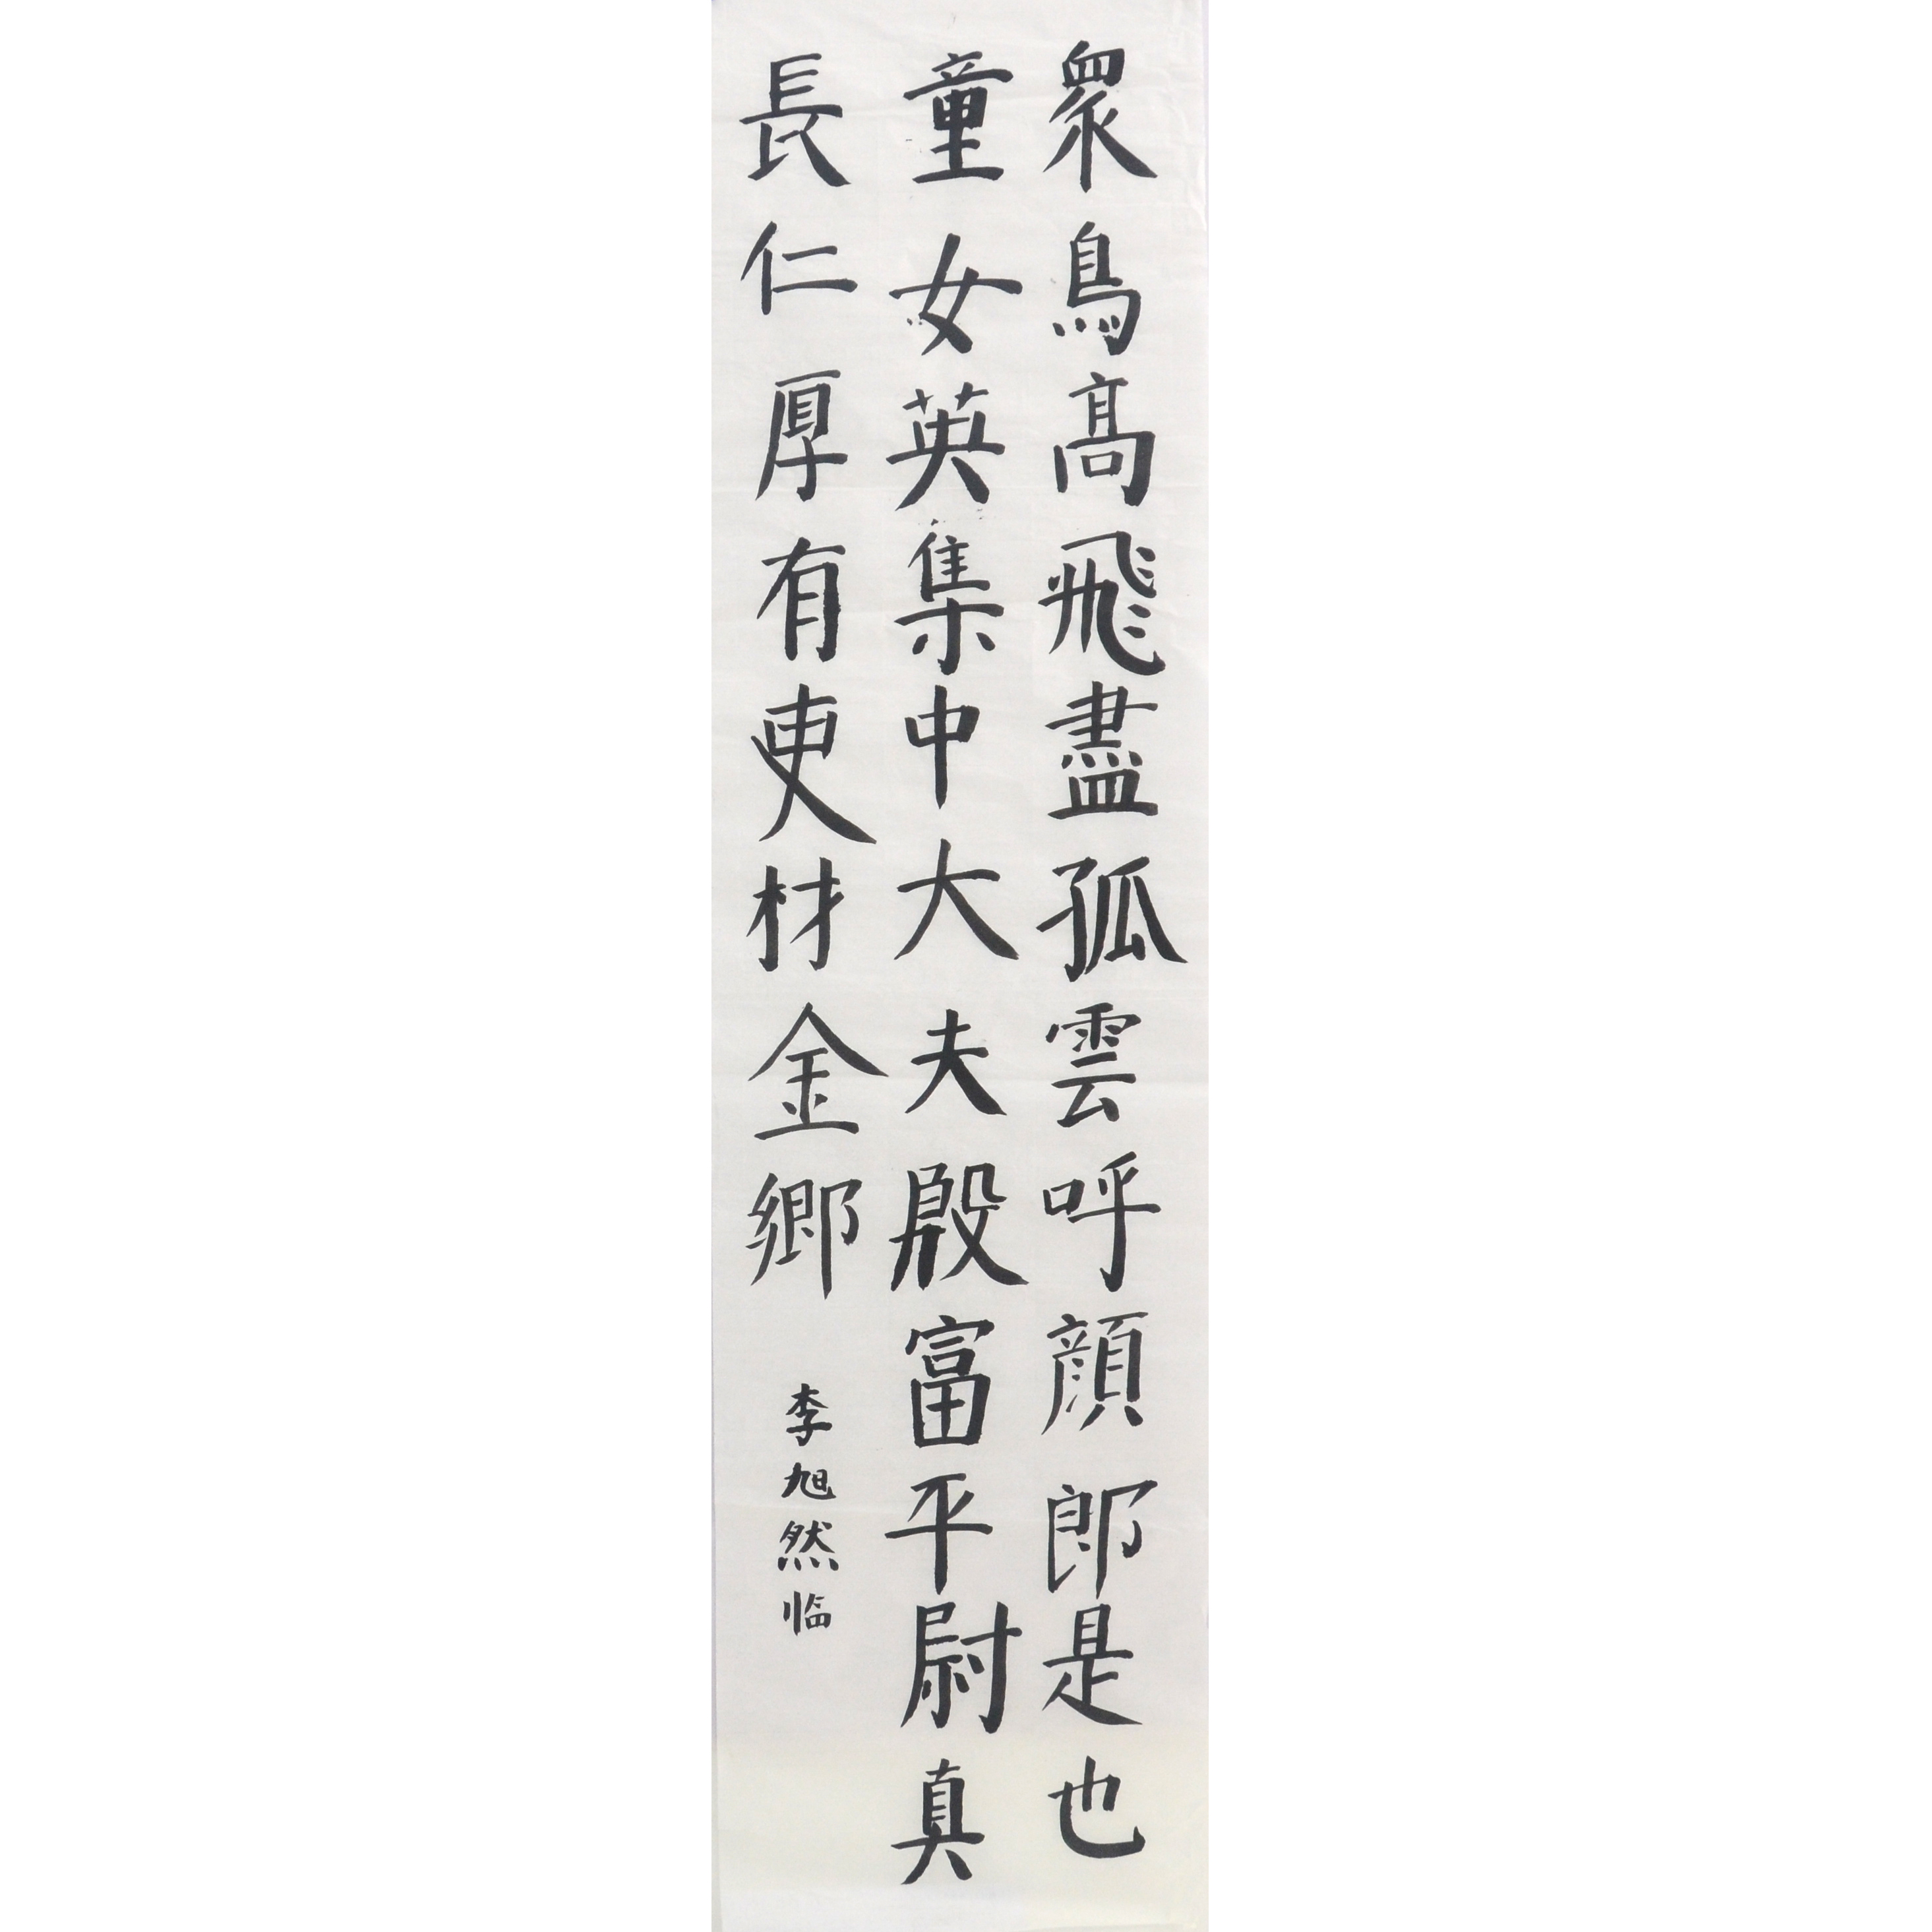 眾鳥高飛盡孤雲呼顏郎是也
童女英集中大夫殷富平尉真
長仁厚有吏材金鄉
李旭然临